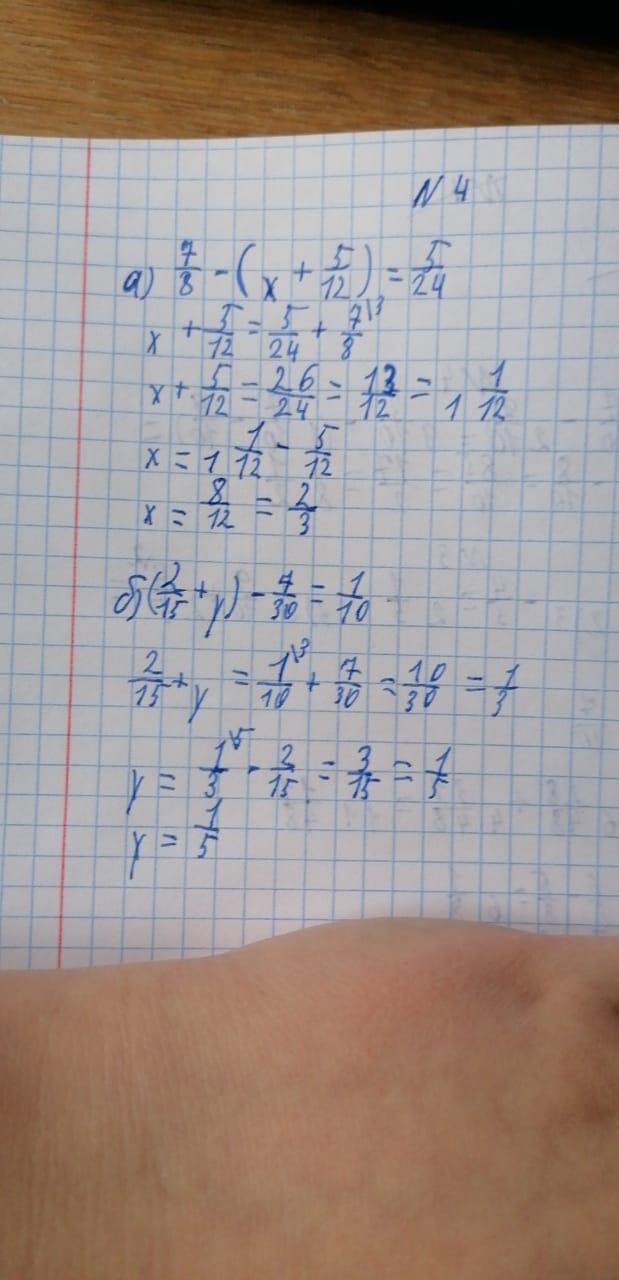 N 4
а) 7/8 - (x + 5/12) = 5/24
x + 5/12 = 5/24 + 7\3/8
x + 5/12 = 26/24 = 13/12 = 1 1/12
x = 1 1/12 - 5/12
x = 8/12 = 2/3
б) (2/15 + y) - 7/30 = 1/10
2/15 + y = 1\3/10 + 7/30 = 10/30 = 1/3
y = 1\5/3 - 2/15 = 3/15 = 1/5
y = 1/5